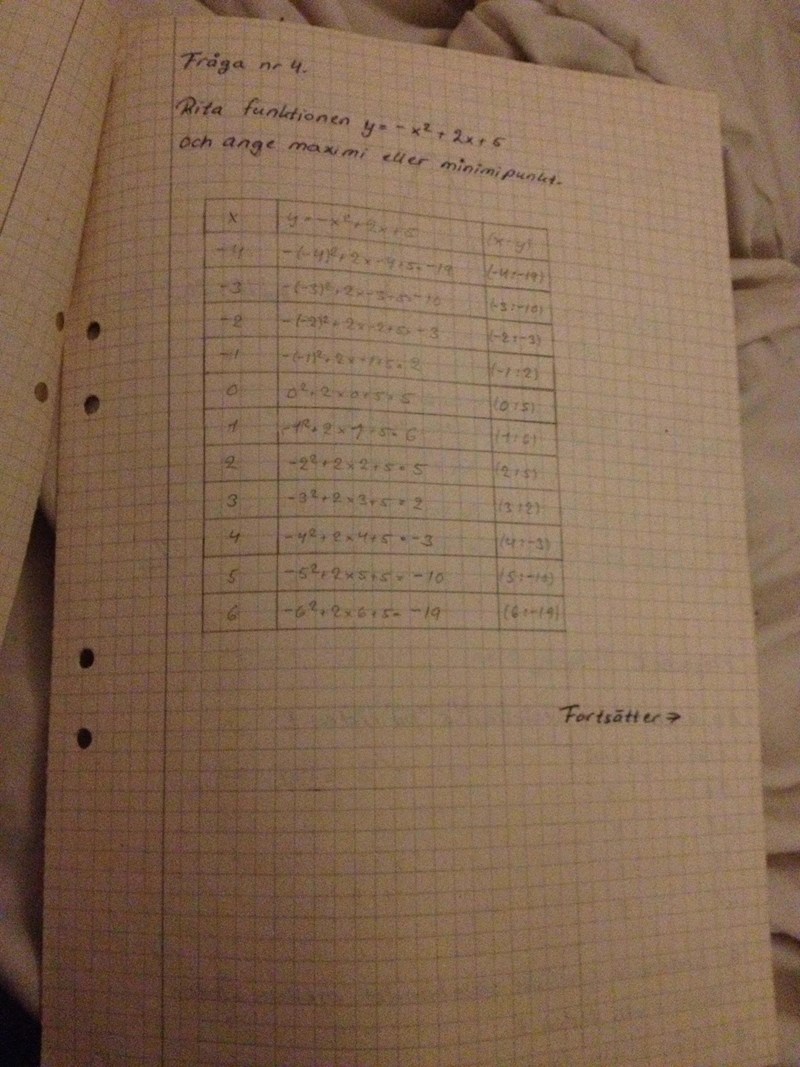 Fråga nr 4.
Rita funktionen y = -x² + 2x + 5
och ange maximi eller minimipunkt.
x y = -x² + 2x + 5 (x:y)
-4 -(-4)² + 2 x -4 + 5 = -19 (-4:-19)
-3 -(-3)² + 2 x -3 + 5 = -10 (-3:-10)
-2 -(-2)² + 2 x -2 + 5 = -3 (-2:-3)
-1 -(-1)² + 2 x -1 + 5 = 2 (-1:2)
0 0² + 2 x 0 + 5 = 5 (0:5)
1 -1² + 2 x 1 + 5 = 6 (1:6)
2 -2² + 2 x 2 + 5 = 5 (2:5)
3 -3² + 2 x 3 + 5 = 2 (3:2)
4 -4² + 2 x 4 + 5 = -3 (4:-3)
5 -5² + 2 x 5 + 5 = -10 (5:-10)
6 -6² + 2 x 6 + 5 = -19 (6:-19)
Fortsätter →